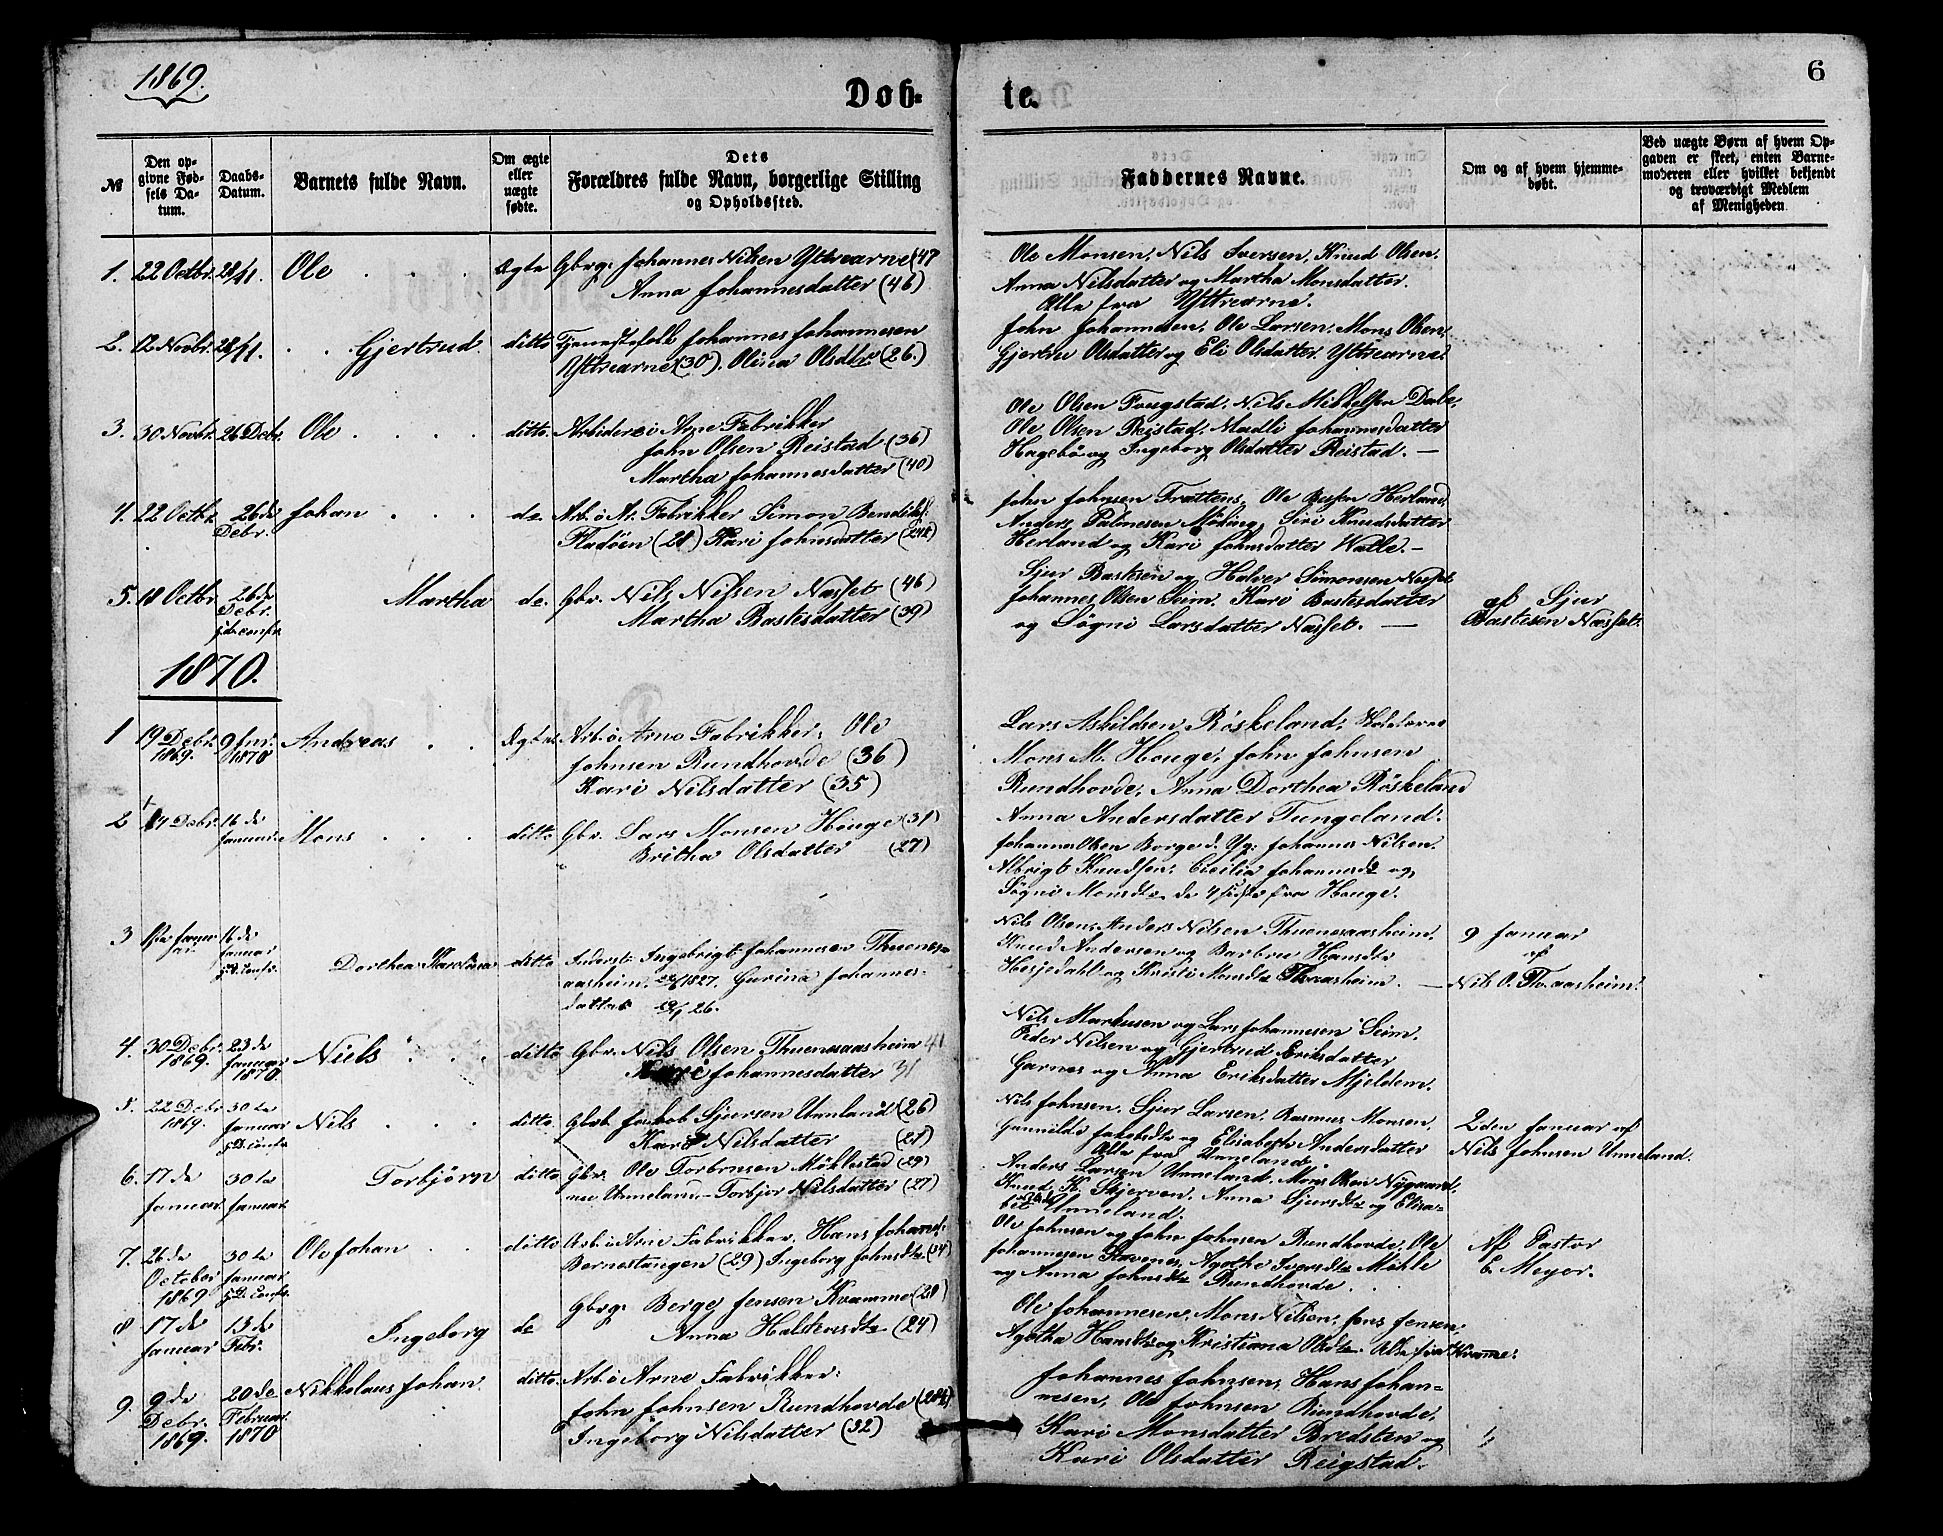 1869.
6
Døb-
te.
№
Den op-
givne Fød-
sels Da-
tum.
Daabs-
Datum.
Barnets fulde Navn.
Om ægte
eller
uægte
fødte.
Dets
Forældres fulde Navn, borgerlige Stilling
og Opholdssted.
Faddernes Navne.
Om og af hvem hjemme-
døbt.
Ved uægte Børn af hvem Op-
gaven er skeet, enten Barne-
moderen eller hvilket bekjendt
og troværdigt Medlem
af Menigheden.
1. 22 Octbr. 28/11. Ole
Ægte Gbrg: Johannes Nilsen Yttrearne (47
Anna Johannesdatter (46)
Ole Monsen, Nils Iverssen, Knud Olsen,
Anna Nilsdatter og Martha Monsdatter.
Alle fra Yttrearne.
2. 12 Novbr. 28/11. Gjertrud.
ditto Tjenestefolk Johannes Johannesen
Yttrearne (30). Olina Olsdtr (26.)
John Johannesen, Ole Larsen, Mons Olsen,
Gjertru Olsdatter og Eli Olsdatter Yttrearne.
3. 30 Novbr. 26 Debr. Ole
ditto. Arbider i Arne Fabrikker
John Olsen Reistad (36)
Martha Johannesdatter (40)
Ole Olsen Fougstad, Nils Mikkelsen Dale,
Ole Olsen Reistad, Madli Johannesdatter
Hagebø og Ingeborg Olsdatter Reistad. —
4. 22 Octbr. 26 de
Debr. Johan
do Arb. i Ar. Fabrikker Simon Bendiks:
Fladøen (28) Kari Johnsdatter
John Johnsen Trættens, Ole Herland,
Anders Palmesen Møling, Siri Knudsdatter
Herland og Kari Johnsdatter Walle. —
5. 18 Octbr. 26 de
Debr.
Martha
de. Gbr. Nils Nilsen Nasset (46)
Martha Bastesdatter (39)
Sjur Bastesen og Halver Simonsen Nasset
Johannes Olsen Seim, Kari Bastesdatter
og Søgni Larsdatter Nasset. —
af Sjur
Bastesen Nasset.
1870.
1 19 Debr. 9 Jnr.
1869. 1870 Andreas
Ægte Arb. i Arne Fabrikker. Ole
Johnsen Rundhovde (36)
Kari Nilsdatter (35)
Lars Askildsen Røskeland,
Mons M. Houge, John Johnsen
Rundhovde, Anna Dorthea Røskeland
Anna Andersdatter Tungeland.
2 14 Debr. 16 de
Januar. Mons
ditto Gbr. Lars Monsen Houge (31)
Britha Olsdatter (27)
Johannes Olsen Borge d. Yg: Johannes Nilsen,
Albrigt Knudsen, Cecilia Johannesdtr og
Søgni Monsdtr de 4 sidste fra Houge.
3 16 de
Januar
Dorthea Karolina
ditto Inderst: Ingebrigt Johannesen Thunes-
aasheim, 1827. Gurina Johannes-
datter 26.
Nils Olsen, Anders Nilsen Thunesaasheim,
Knud Andersen og Barbru Hansdtr
Hesjedahl og Kristi Monsdtr Thaasheim. —
9 Januar
af
Nils O. Th.aasheim.
4. 30 Debr. 23 de
1869. Januar
1870. Niels
ditto Gbr. Nils Olsen Thunesaasheim 41
Kari Johannesdatter 31
Nils Markusen og Lars Johannesen Seim.
Peder Nilsen og Gjertrud Eriksdatter
Garnes og Anna Eriksdatter Mjeldem.
5. 22 Debr 30 te
1869. Januar
Nils
ditto Gbrb Jakob Sjursen Unneland (26)
Kari Nilsdatter (28)
Nils Johnsen, Sjur Larsen, Rasmus Monsen,
Gunnilde Jakobsdtr og Elisabeth Andersdatter
Alle fra Unneland.
2den Januar af
Nils Johnsen Unneland.
6. 17 de 30 te
Januar Januar. Torbjørn
ditto Gbr. Ole Torbrnsen Møklestad (29)
nu Unneland - Torbjør Nilsdatter (27)
Anders Larsen Unneland, Mons Olsen Nygaard,
Knud K. Skjerven, Anna Sjursdtr og Elisa-
bet Unneland.
7. 26 de 30 te
October Januar
1869 Ole Johan
ditto Arb. i Arne Fabrikker, Hans Johans:
Bernestangen (29) Ingeborg Johnsdtr (34)
Ole Johnsen og John Johnsen Rundhovde, Ole
Johannesen Agathe Iversdtr Møhle
og Anna Johnsdtr Rundhovde.
Af Pastor
E. Meyer.
8 17 de 13 de
Januar Febr. Ingeborg
de Gbrg: Berge Jensen Kvamme (28)
Anna Halstensdtr (24)
Ole Johannesen, Mons Nilsen, Jens Jensen,
Agatha Hansdtr og Kristiana Olsdtr. Alle fra Kvamme.
9. 9 de 20 de
Debr. Februar
1869. 1870 Nikkolaus Johan.
ditto. Arb. i Arne Fabrikker:
John Johnsen Rundhovde
Ingeborg Nilsdatter (32)
Johannes Johnsen, Hans Johan-
nesen, Ole Johnsen Rundhovde,
Kari Monsdatter Bredsten og
Kari Olsdatter Reigstad.